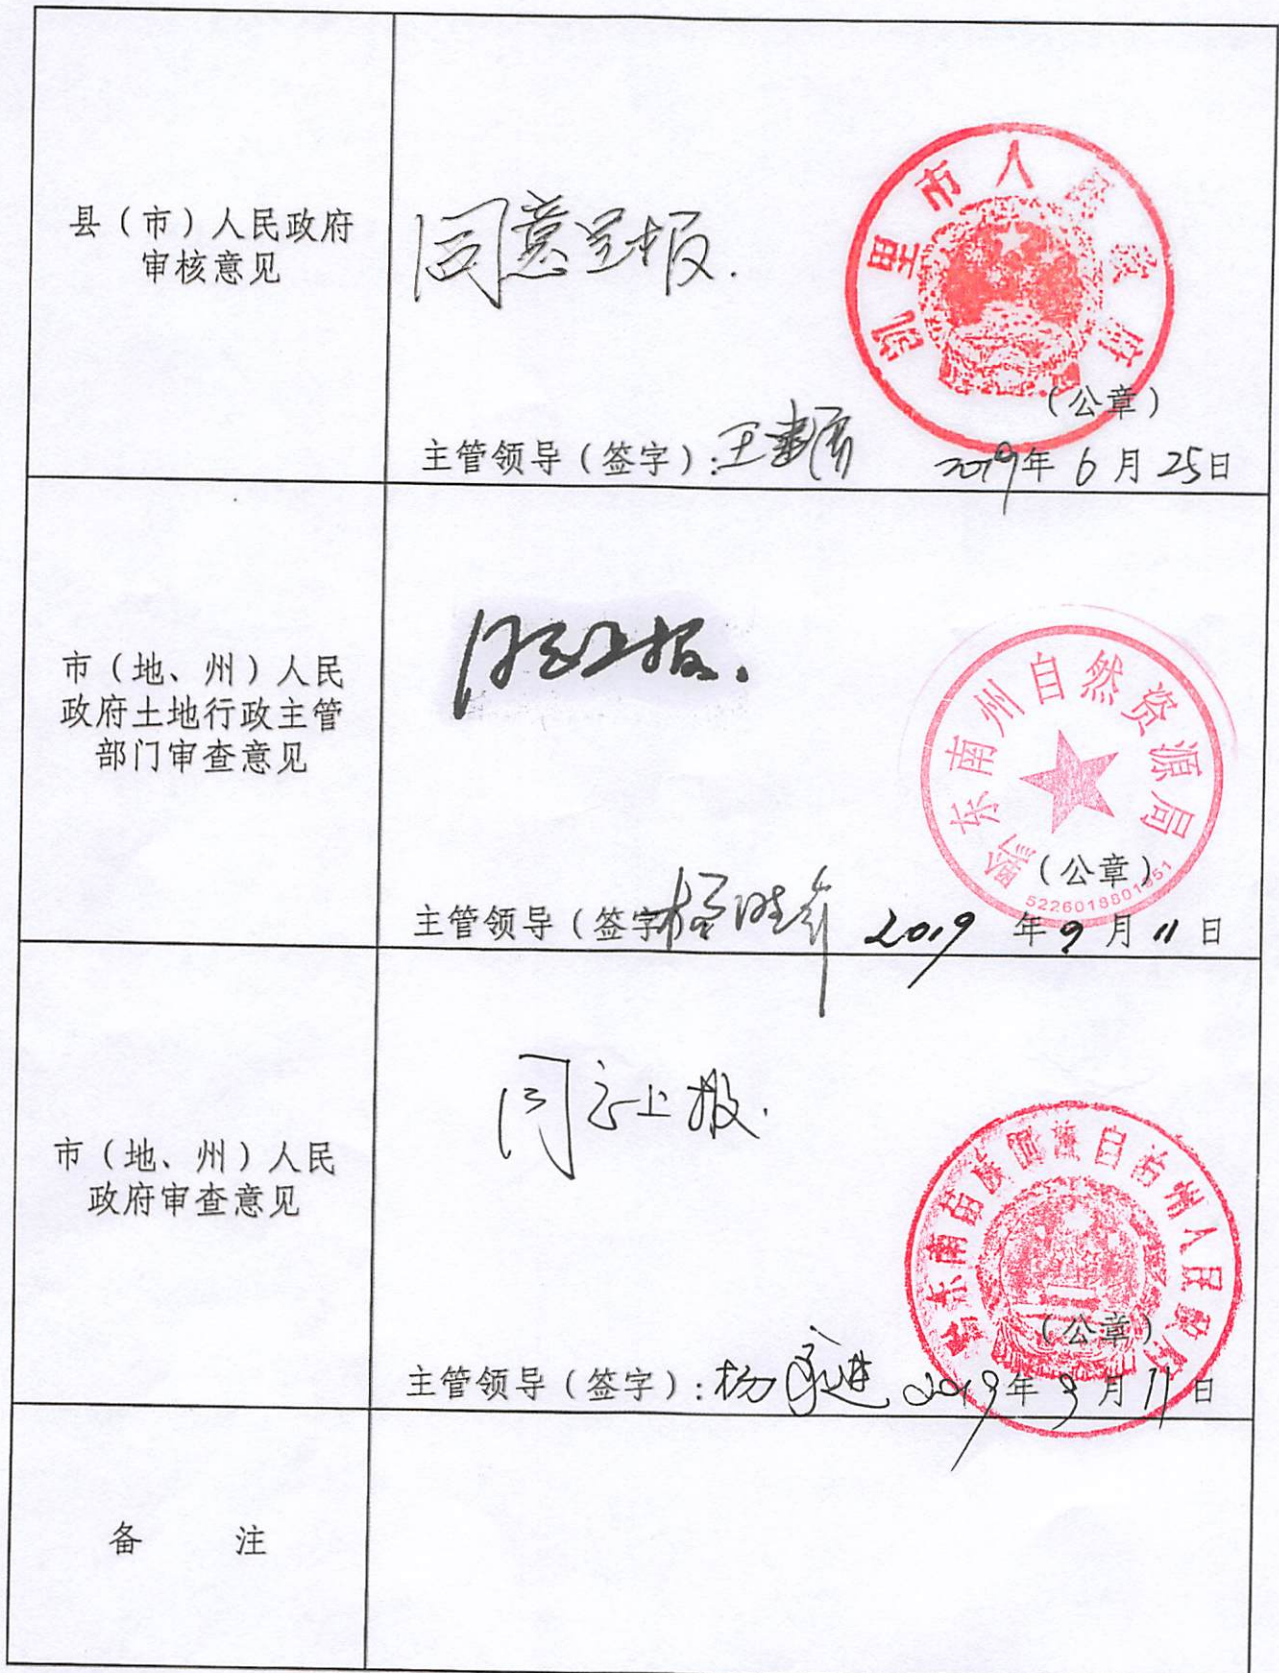 县（市）人民政府
审核意见
同意呈报.
凯里市人民政府
（公章）
主管领导（签字）：王
2019年6月25日
市（地、州）人民
政府土地行政主管
部门审查意见
同意上报.
黔东南州自然资源局
（公章）
主管领导（签字
2019年9月11日
市（地、州）人民
政府审查意见
同意上报.
黔东南苗族侗族自治州人民政府
（公章）
主管领导（签字）：杨
2019年9月11日
备 注